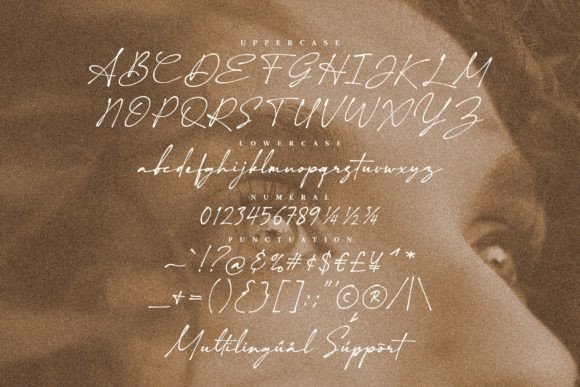 UPPERCASE
ABCDEFGHIJKLM
NOPQRSTUVWXYZ
LOWERCASE
abcdefghijklmnopqrstuvwxyz
NUMERAL
0123456789 ¼ ½ ¾
PUNCTUATION
~`!?@&%#¢$€£¥^*
_+=(){}[]:;"'©®/|\
Multilingûâl Súppõrt